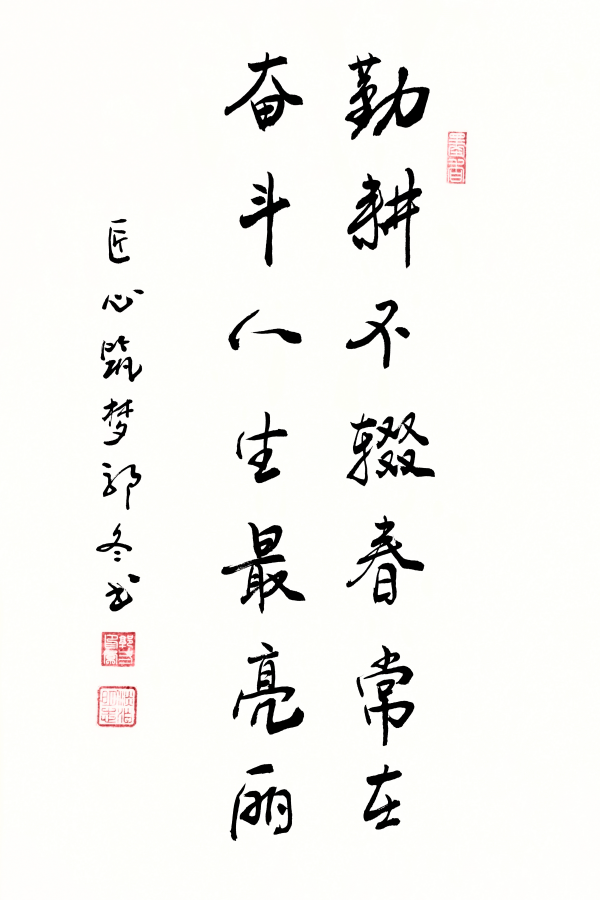 勤耕不辍春常在
奋斗人生最亮丽
匠心筑梦郭冬书